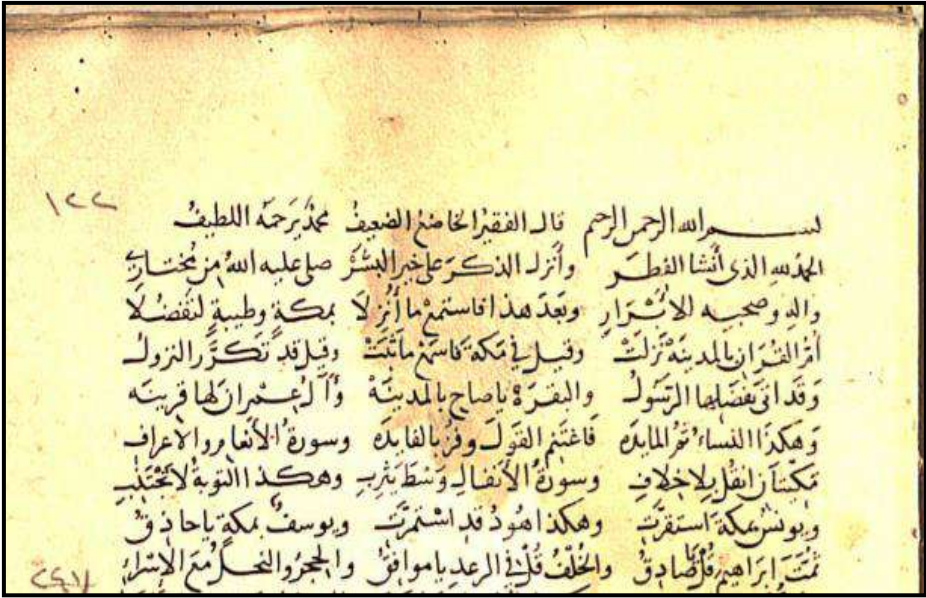 ١٢٢
بسم الله الرحمن الرحيم قال الفقير الخاضع الضعيف محمد يرحمه اللطيف
الحمد لله الذى أنشا الفطر وأنزل الذكر على خير البشر صلى عليه الله من مختار
واله وصحبه الابرار وبعد هذا فاستمع ما أنزلا بمكة وطيبة لتفضلا
أم القران بالمدينة نزلت وقيل في مكة فاسمع ما ثبت وقيل قد تكرر النزول
وقد اتى بفضلها الرسول والبقرة ياصاح بالمدينة وآل عمران لها قرينه
وهكذا النساء ثم المايده فاغتنم القول وفز بالفايده وسورة الأنعام والاعراف
مكيتان انقل بلا خلاف وسورة الأنفال وسط يثرب وهكذا التوبة لا تجتنب
ويونس بمكة استقرت وهكذا هود قد استمرت ويوسف بمكة ياحاذق
تمت ابراهيم قل صادق والخلف قل في الرعد ياموافق والحجر والنحل مع الاسرا